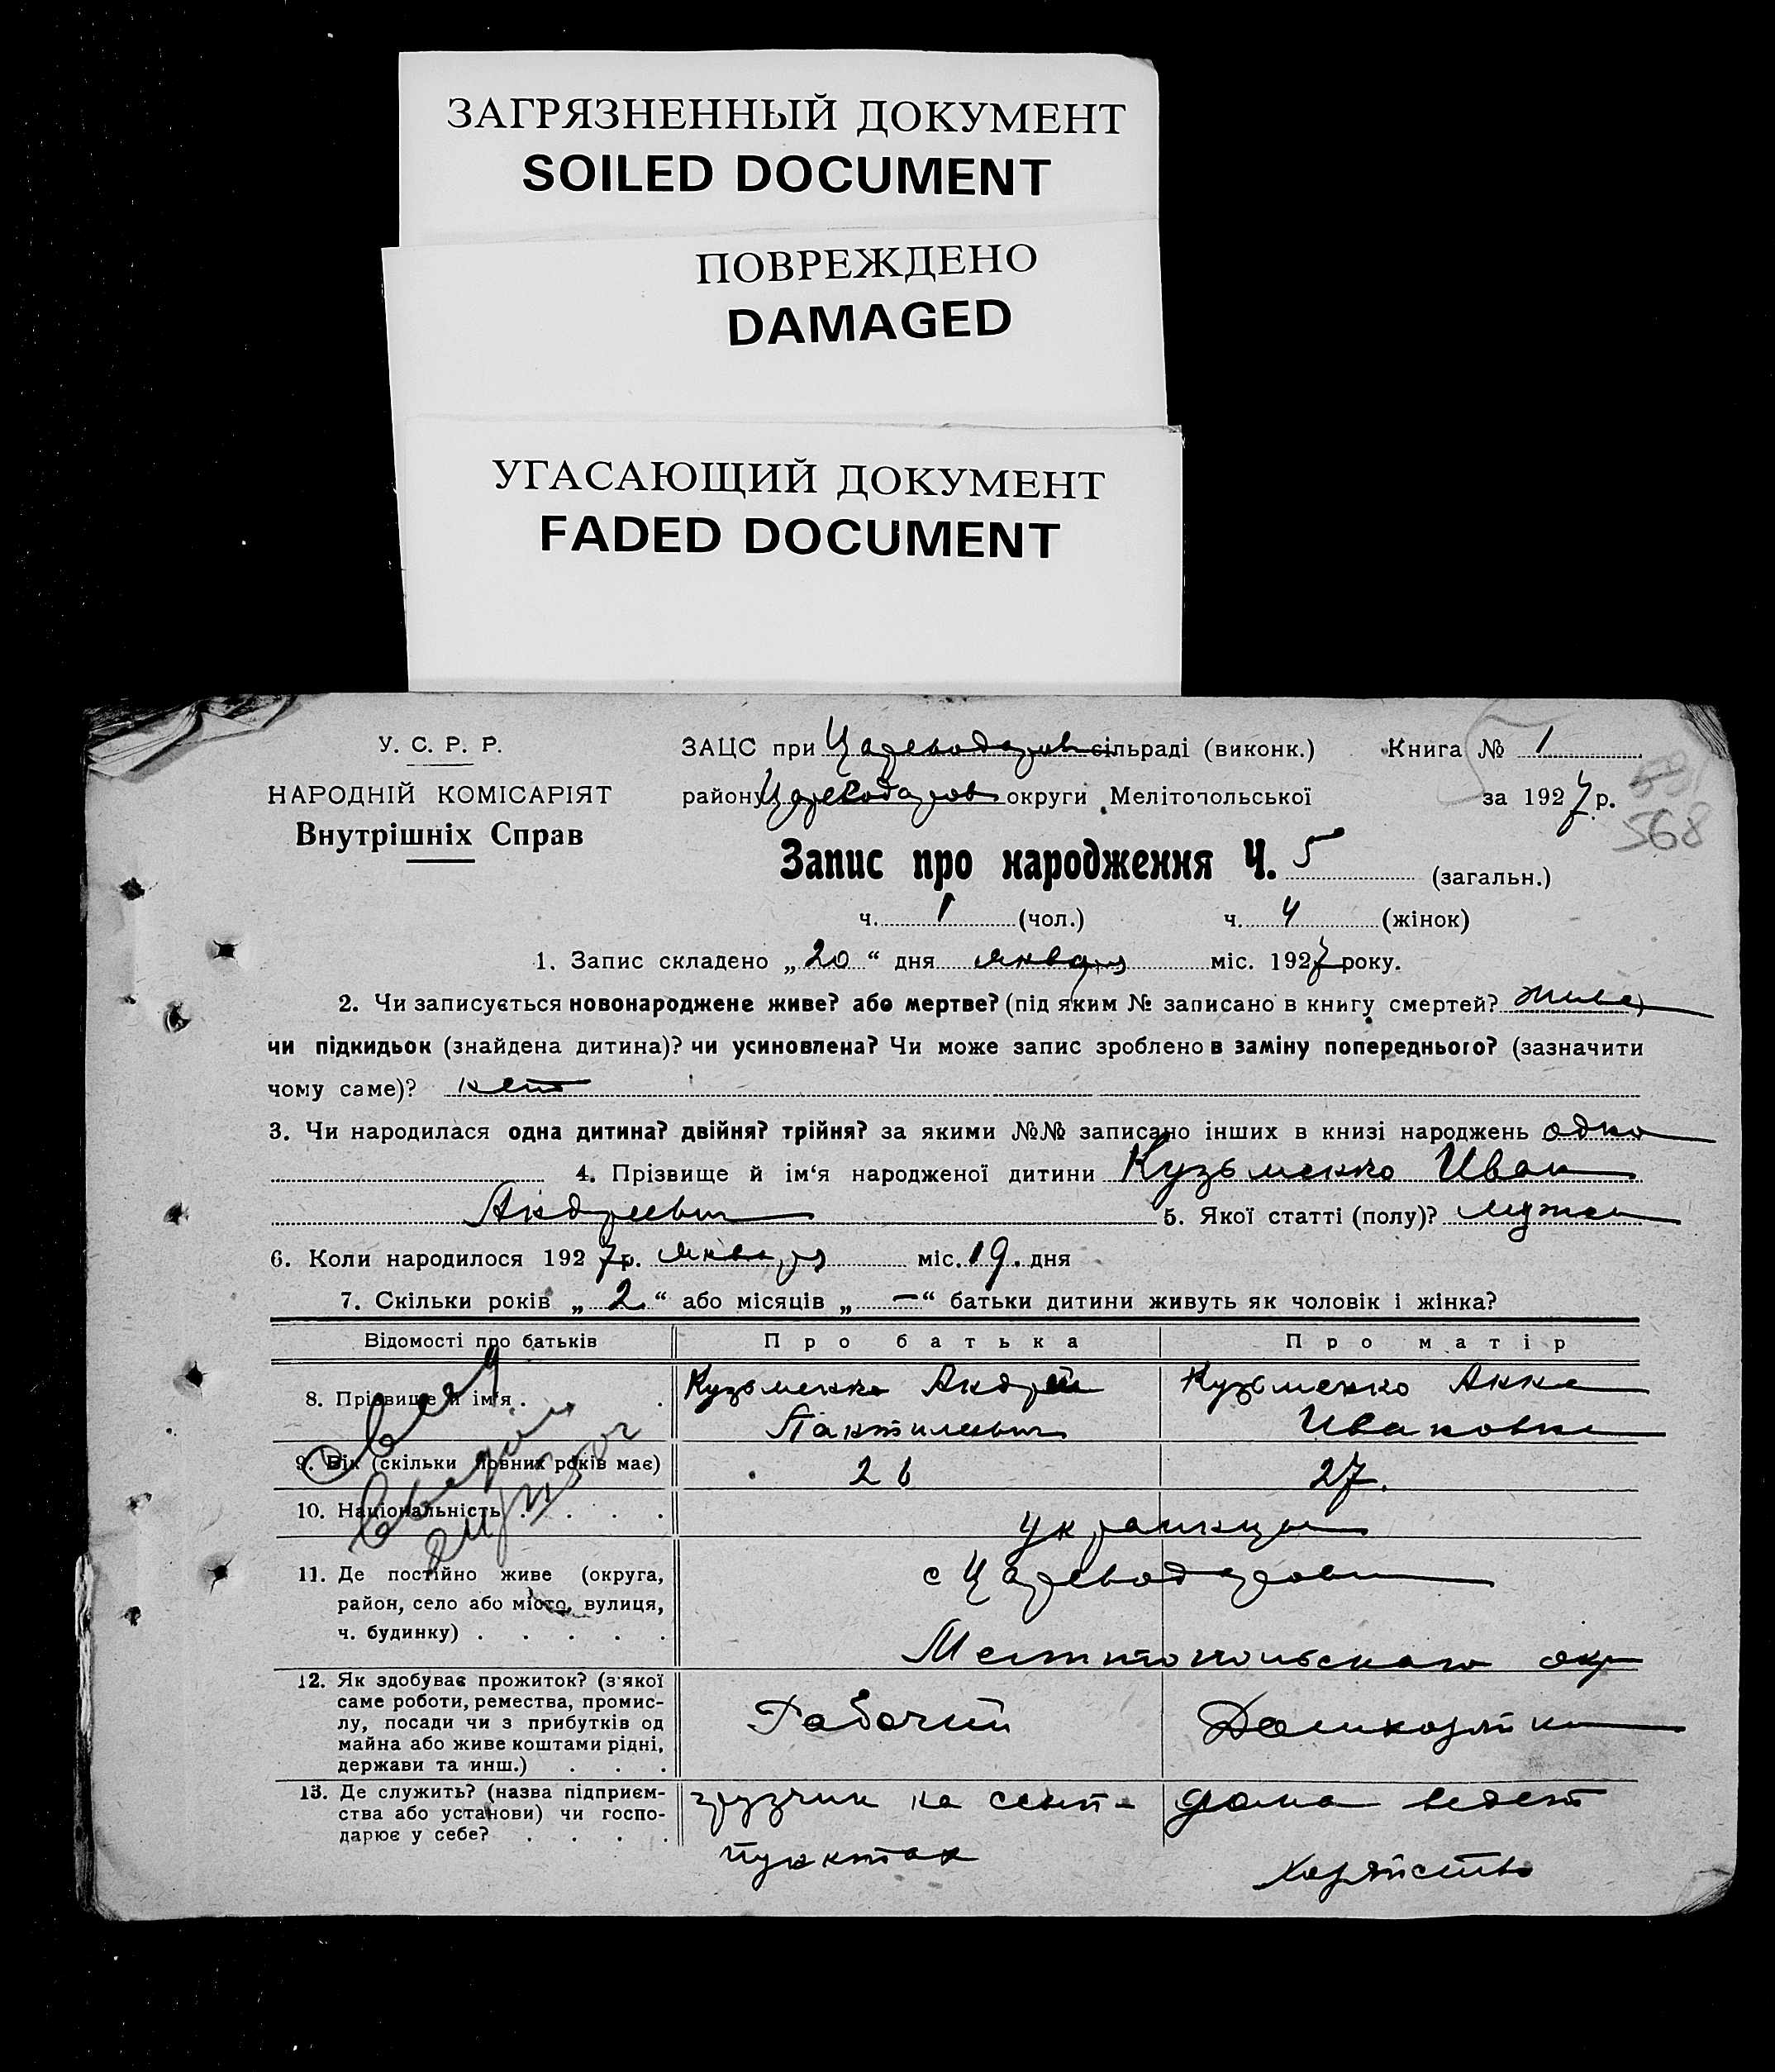 ЗАГРЯЗНЕННЫЙ ДОКУМЕНТ
SOILED DOCUMENT
ПОВРЕЖДЕНО
DAMAGED
УГАСАЮЩИЙ ДОКУМЕНТ
FADED DOCUMENT
У. С. Р. Р.
НАРОДНІЙ КОМІСАРІЯТ
Внутрішніх Справ
ЗАЦС при Цареводаров сільраді (виконк.) Книга № 1
району Цареводаров округи Мелітопольської за 1927 р.
591
568
Запис про народження Ч. 5 (загальн.)
ч. 1 (чол.) ч. 4 (жінок)
1. Запис складено „20“ дня января міс. 1927 року.
2. Чи записується новонароджене живе? або мертве? (під яким № записано в книгу смертей?
чи підкидьок (знайдена дитина)? чи усиновлена? Чи може запис зроблено в заміну попереднього? (зазначити
чому саме)? нет
3. Чи народилася одна дитина? двійня? трійня? за якими №№ записано інших в книзі народжень одно
4. Прізвище й ім‘я народженої дитини Кузьменко Иван
Андреевич 5. Якої статті (полу)? мужск
6. Коли народилося 1927 р. января міс. 19. дня
7. Скільки років „2“ або місяців „—“ батьки дитини живуть як чоловік і жінка?
Відомості про батьків Про батька Про матір
8. Прізвище й ім‘я . . Кузьменко Андрей Кузьменко Анна
Пантилеевич Ивановна
9. Вік (скільки повних років має) 26 27.
10. Національність . . . . украинцы
11. Де постійно живе (округа, с Цареводаровки
район, село або місто, вулиця,
ч. будинку) . . . . . Мелитопольского окр
12. Як здобуває прожиток? (з‘якої
саме роботи, ремества, промис-
лу, посади чи з прибутків од Рабочий Домхозяйка
майна або живе коштами рідні,
держави та инш.) . . .
13. Де служить? (назва підприєм- грузчик на ссып- дома ведет
ства або установи) чи госпо-
дарює у себе? . . . . пунктах хозяйство